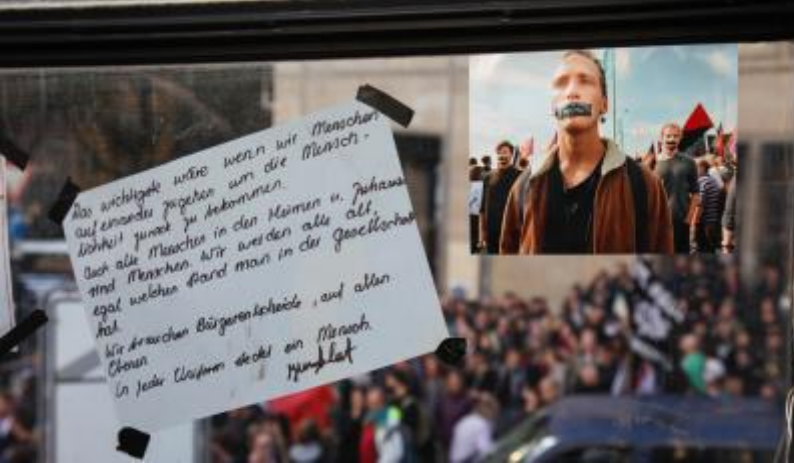 Das wichtigste wäre wenn wir Menschen
aufeinander zugehen um die Mensch-
lichkeit zurück zu bekommen.
Auch alte Menschen in den Heimen u. Zuhause
sind Menschen. Wir werden alle alt,
egal welchen Stand man in der Gesellschaft
hat.
Wir brauchen Bürgerentscheide, auf allen
Ebenen.
In jeder Uniform steckt ein Mensch.